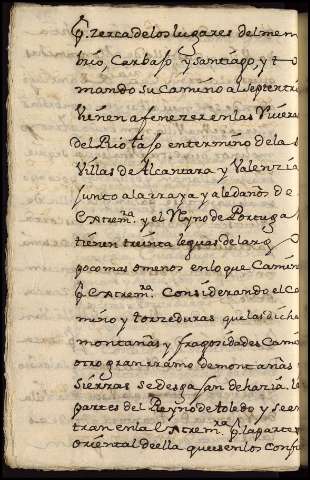 p.ᵣ zerca de los lugares del mem
brio, Carbajo y Santiago, y to
mando su Camino al septentri
Vienen a fenezer en las Riveras
del Rio tajo en termino de las
Villas de Alcantara y Valenzia
junto a la rraya y aledaños de
Extrem.ʳᵃ y el Reyno de Portugal
tienen treinta leguas de largo
poco mas o menos en lo que Camin
p.ʳ Extrem.ʳᵃ Considerando el Ca
mino y torzeduras que las dichas
montañas y fragosidades Camin
otro gran rramo de montañas
Sierras se desgajan de hazia las
partes del Reyno de toledo y se en
tran en la Extrem.ʳᵃ p.ʳ la parte
oriental de ella que es en los Confi